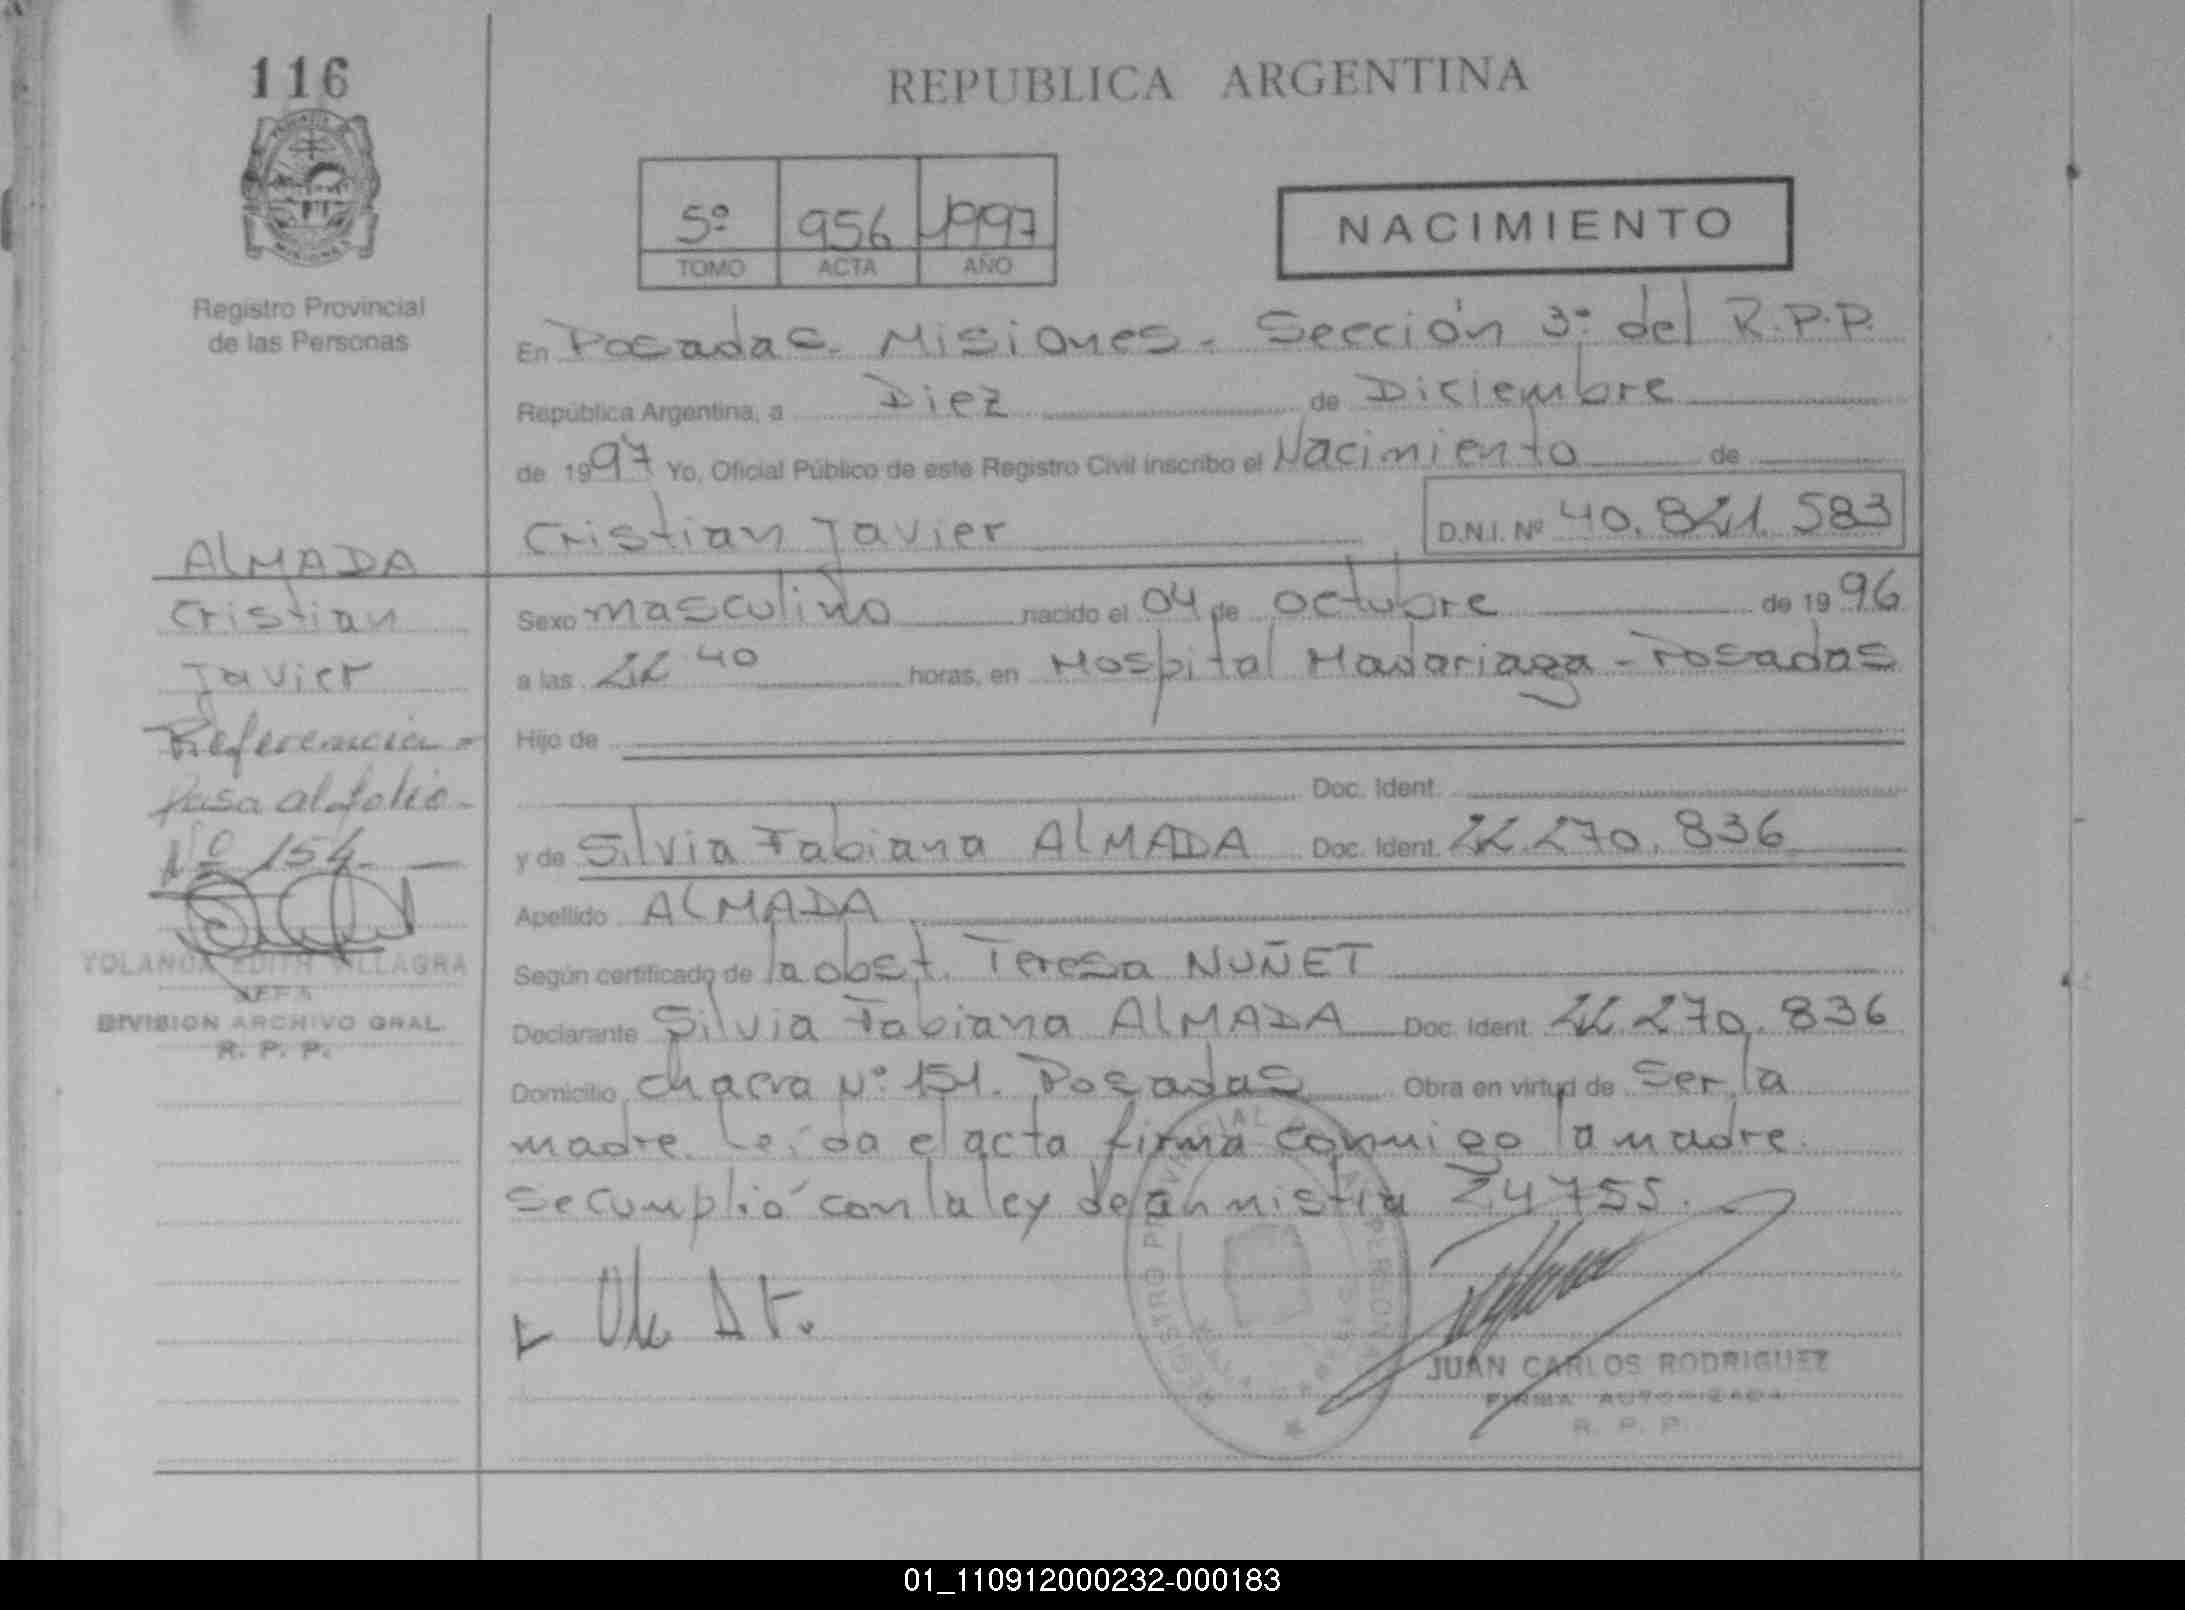 116
REPUBLICA ARGENTINA
5º 956 1997
TOMO ACTA AÑO
NACIMIENTO
Registro Provincial
de las Personas
En Posadas. Misiones. Sección 3º del R.P.P.
República Argentina, a Diez de Diciembre
de 1997 Yo, Oficial Público de este Registro Civil inscribo el Nacimiento de
Cristian Javier D.N.I. Nº 40.821.583
ALMADA
Cristian
Javier
Referencia =
Pasa al folio
Nº 154
YOLANDA EDITH VILLAGRA
JEFA
DIVISION ARCHIVO GRAL.
R. P. P.
Sexo masculino nacido el 04 de octubre de 1996
a las 22 40 horas, en Hospital Madariaga - Posadas
Hijo de
Doc. Ident.
y de Silvia Fabiana ALMADA Doc. Ident. 22.270.836
Apellido ALMADA
Según certificado de la obst. Teresa NUÑET
Declarante Silvia Fabiana ALMADA Doc. Ident. 22.270.836
Domicilio chacra Nº 151. Posadas Obra en virtud de Ser la
madre. Leída el acta firma conmigo la madre.
Se cumplió con la ley de anmistia 24755.
REGISTRO PROVINCIAL PERSONAS
JUAN CARLOS RODRIGUEZ
FIRMA AUTORIZADA
R. P. P.
01_110912000232-000183